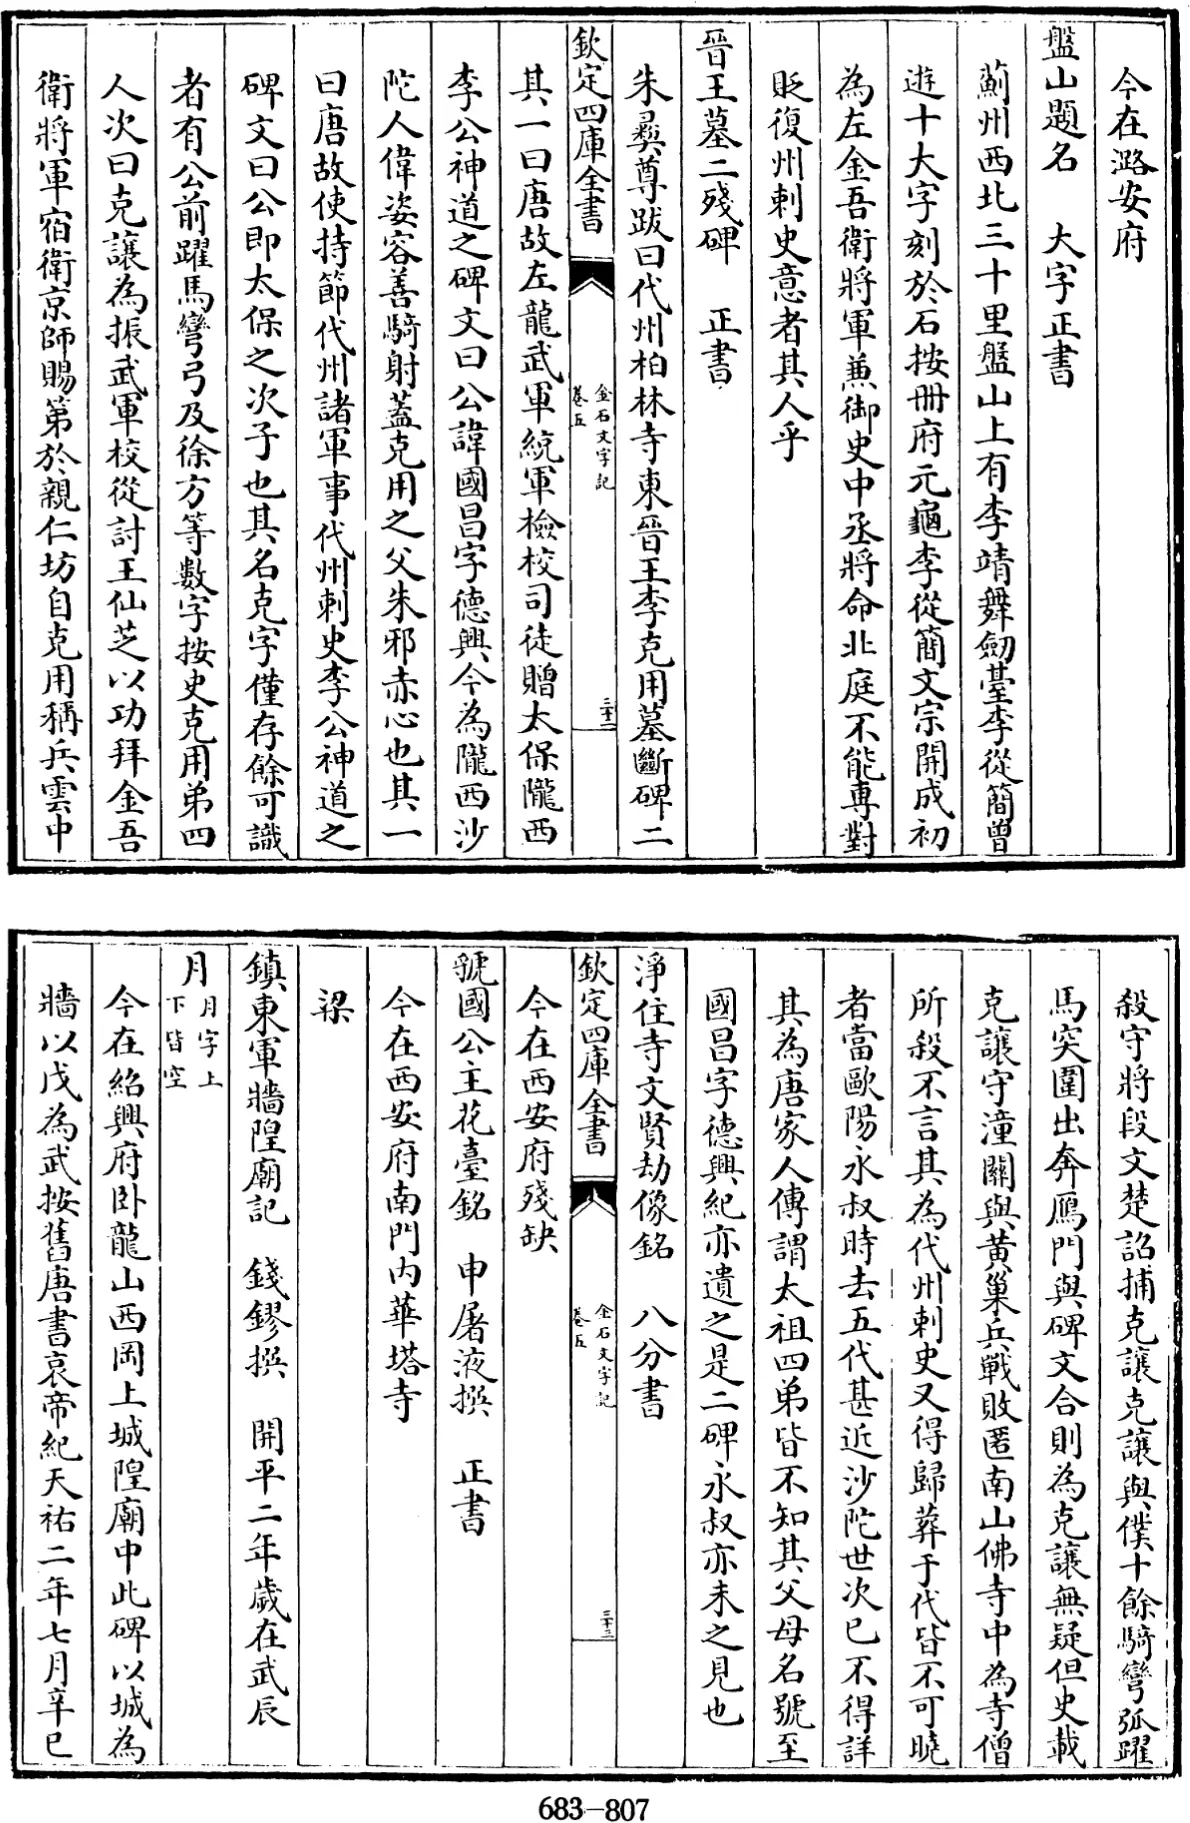 今在潞安府
盤山題名　大字正書
薊州西北三十里盤山上有李靖舞劒臺李從簡曾
遊十大字刻於石按冊府元龜李從簡文宗開成初
為左金吾衛將軍兼御史中丞將命北庭不能專對
貶復州刺史意者其人乎
晉王墓二殘碑　正書
朱彝尊跋曰代州柏林寺東晉王李克用墓斷碑二
欽定四庫全書　金石文字記卷五　三十二
其一曰唐故左龍武軍統軍檢校司徒贈太保隴西
李公神道之碑文曰公諱國昌字德興今為隴西沙
陀人偉姿容善騎射蓋克用之父朱邪赤心也其一
曰唐故使持節代州諸軍事代州刺史李公神道之
碑文曰公即太保之次子也其名克字僅存餘可識
者有公前躍馬彎弓及徐方等數字按史克用弟四
人次曰克讓為振武軍校從討王仙芝以功拜金吾
衛將軍宿衛京師賜第於親仁坊自克用稱兵雲中
殺守將段文楚詔捕克讓克讓與僕十餘騎彎弧躍
馬突圍出奔鴈門與碑文合則為克讓無疑但史載
克讓守潼關與黃巢兵戰敗匿南山佛寺中為寺僧
所殺不言其為代州刺史又得歸葬于代皆不可曉
者當歐陽永叔時去五代甚近沙陀世次已不得詳
其為唐家人傳謂太祖四弟皆不知其父母名號至
國昌字德興紀亦遺之是二碑永叔亦未之見也
淨住寺文賢劫像銘　八分書
欽定四庫全書　金石文字記卷五　三十三
今在西安府殘缺
虢國公主花臺銘　申屠液撰　正書
今在西安府南門內華塔寺
梁
鎮東軍牆隍廟記　錢鏐撰　開平二年歲在武辰
月月字上下皆空
今在紹興府卧龍山西岡上城隍廟中此碑以城為
牆以戊為武按舊唐書哀帝紀天祐二年七月辛巳
683-807